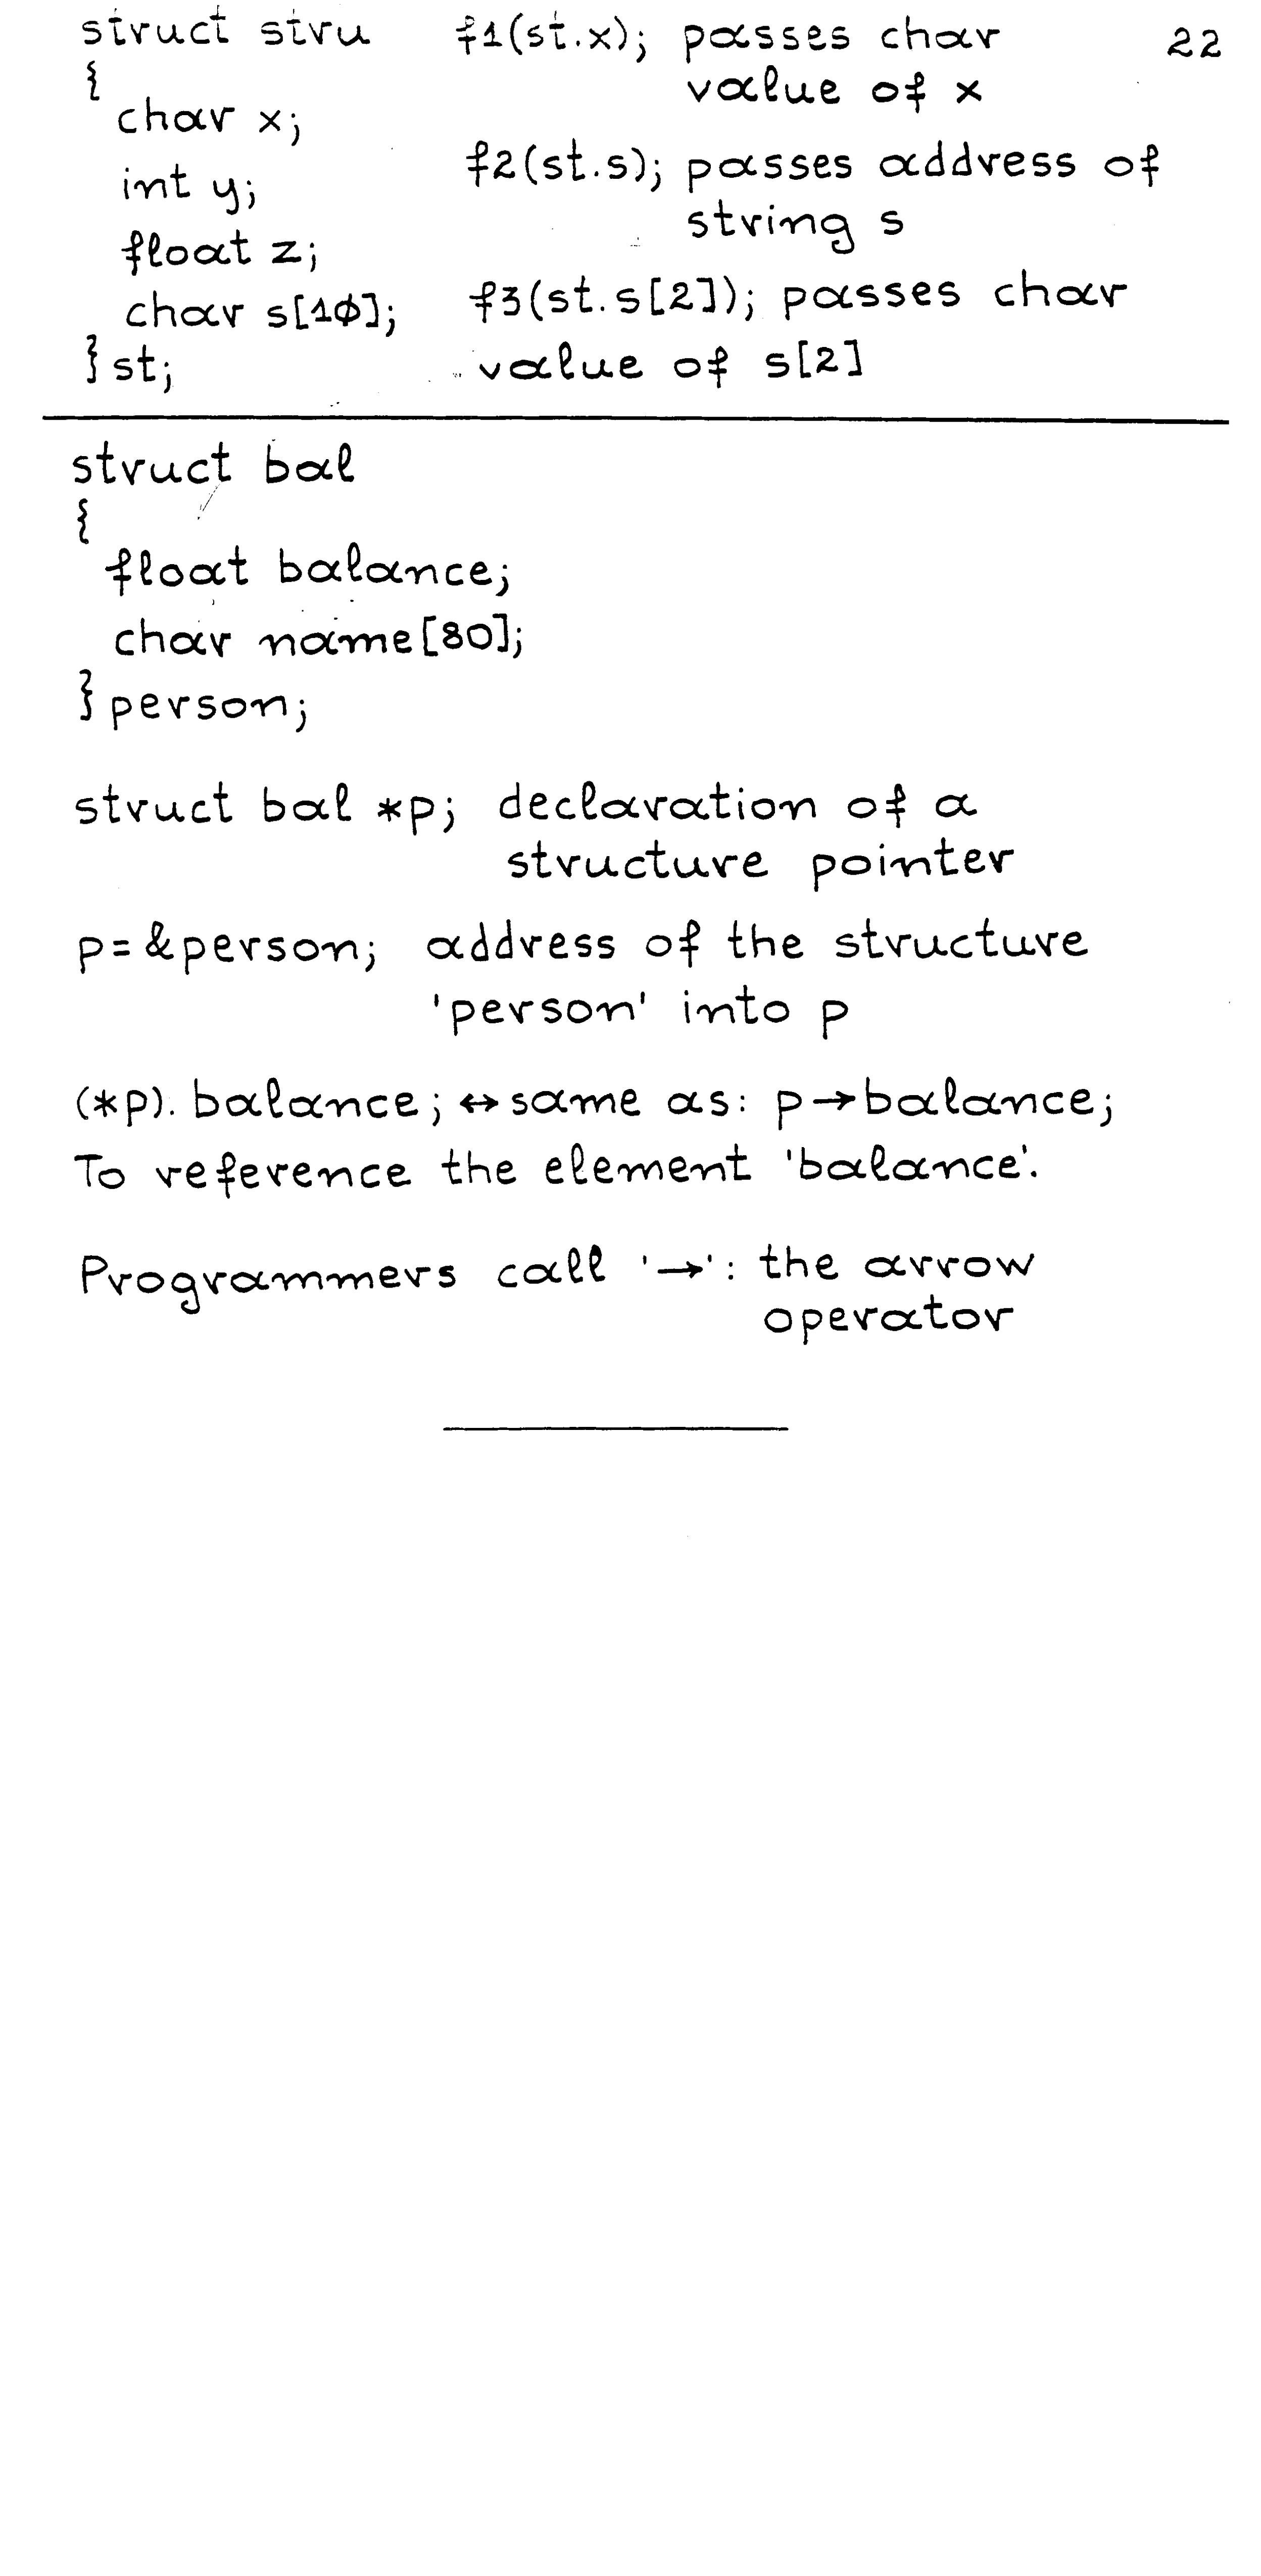 struct stru
{
char x;
int y;
float z;
char s[10];
} st;
f1(st.x); passes char
value of x
f2(st.s); passes address of
string s
f3(st.s[2]); passes char
value of s[2]
22
struct bal
{
float balance;
char name[80];
} person;
struct bal *p; declaration of a
structure pointer
p=&person; address of the structure
'person' into p
(*p).balance; ↔ same as: p→balance;
To reference the element 'balance'.
Programmers call '→': the arrow
operator